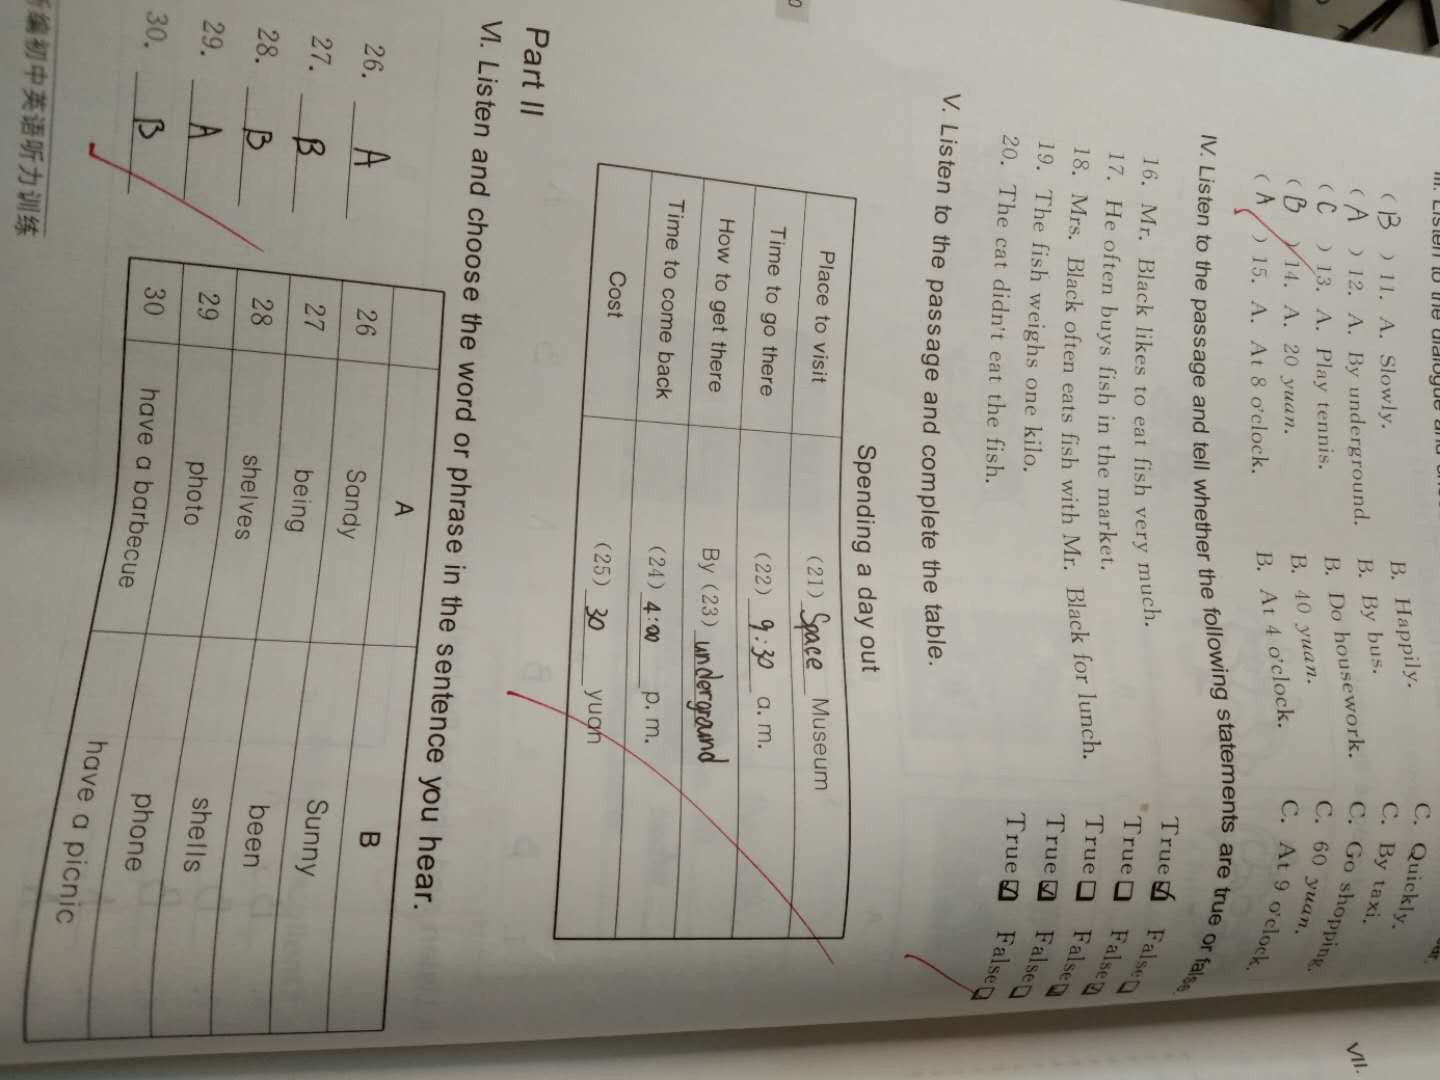 III. Listen to the dialogue and
( B ) 11. A. Slowly. B. Happily. C. Quickly.
( A ) 12. A. By underground. B. By bus. C. By taxi.
( C ) 13. A. Play tennis. B. Do housework. C. Go shopping.
( B ) 14. A. 20 yuan. B. 40 yuan. C. 60 yuan.
( A ) 15. A. At 8 o'clock. B. At 4 o'clock. C. At 9 o'clock.
IV. Listen to the passage and tell whether the following statements are true or false.
16. Mr. Black likes to eat fish very much. True☑ False□
17. He often buys fish in the market. True□ False☑
18. Mrs. Black often eats fish with Mr. Black for lunch. True□ False☑
19. The fish weighs one kilo. True☑ False□
20. The cat didn't eat the fish. True☑ False□
V. Listen to the passage and complete the table.
Spending a day out
Place to visit (21) Space Museum
Time to go there (22) 9:30 a.m.
How to get there By (23) underground
Time to come back (24) 4:00 p.m.
Cost (25) 30 yuan
Part II
VI. Listen and choose the word or phrase in the sentence you hear.
A B
26 Sandy Sunny
27 being been
28 shelves shells
29 photo phone
30 have a barbecue have a picnic
26. A
27. B
28. B
29. A
30. B
编初中英语听力训练
VII.